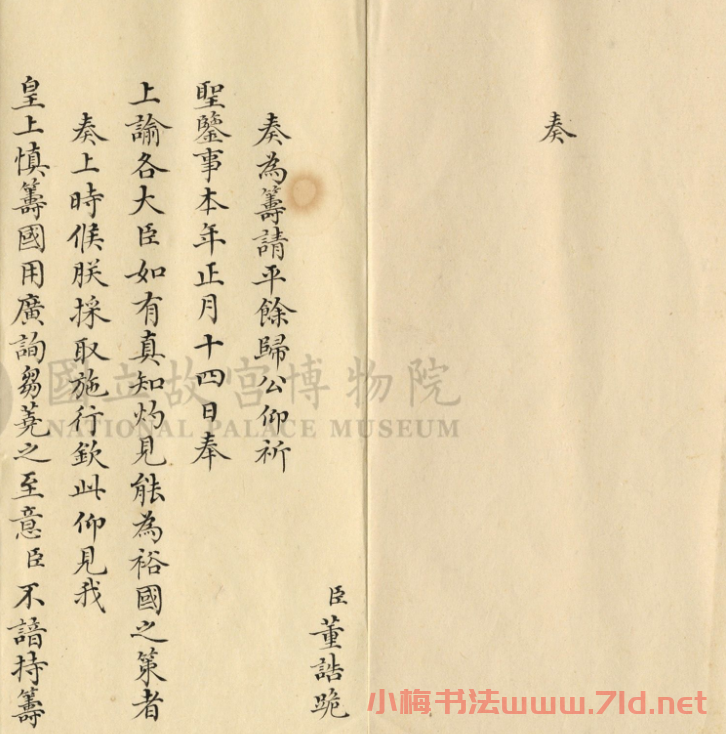 奏
臣董誥跪
奏為籌請平餘歸公仰祈
聖鑒事本年正月十四日奉
上諭各大臣如有真知灼見能為裕國之策者
奏上時候朕採取施行欽此仰見我
皇上慎籌國用廣詢芻蕘之至意臣不諳持籌
國立故宮博物院
NATIONAL PALACE MUSEUM
小梅书法www.7ld.net